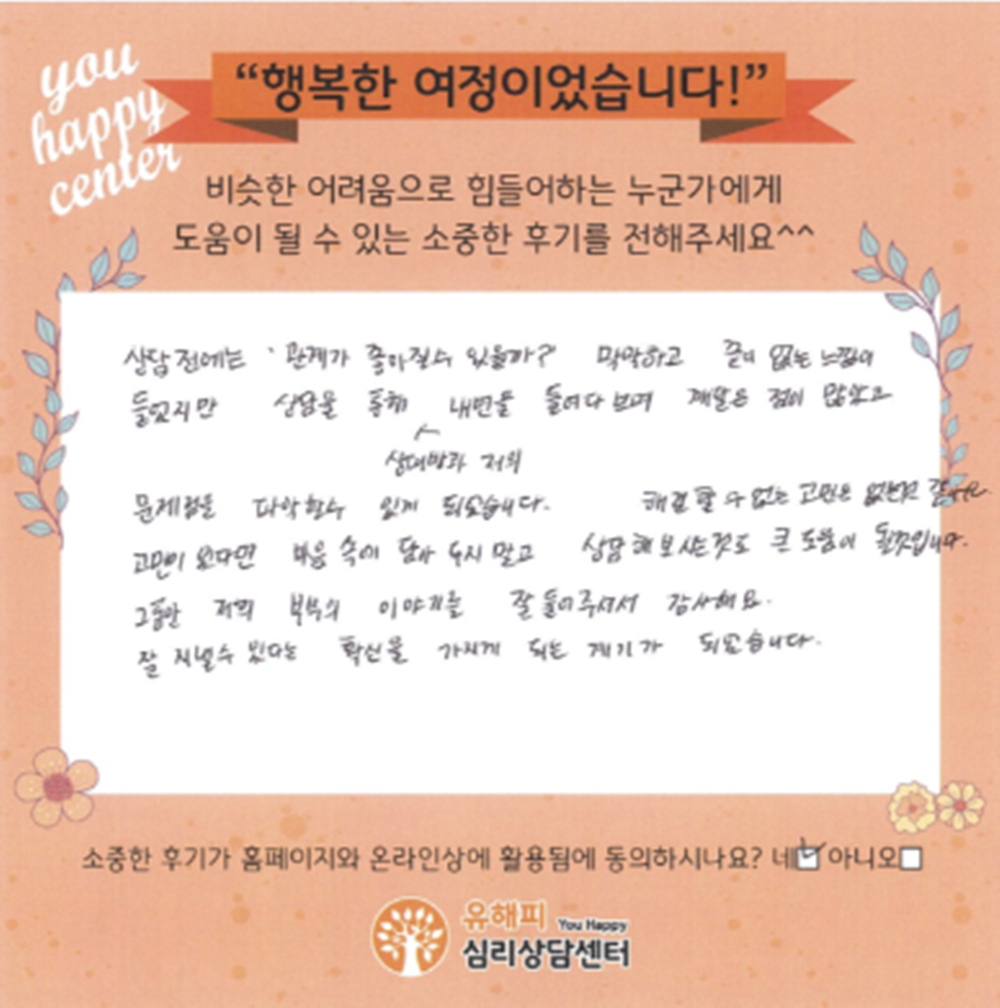 you
happy
center
“행복한 여정이었습니다!”
비슷한 어려움으로 힘들어하는 누군가에게
도움이 될 수 있는 소중한 후기를 전해주세요^^
상담 전에는 ' 관계가 좋아질수 있을까? 막막하고 끝이 없는 느낌이
들었지만 상담을 통해 내면을 들여다 보며 깨달은 점이 많았고
상대방과 저의
문제점을 파악할수 있게 되었습니다. 해결 할 수 없는 고민은 없는것 같아요.
고민이 있다면 마음 속에 담아 두지 말고 상담 해 보시는것도 큰 도움이 될것입니다.
그동안 저희 부부의 이야기를 잘 들어주셔서 감사해요.
잘 지낼수 있다는 확신을 가지게 되는 계기가 되었습니다.
소중한 후기가 홈페이지와 온라인상에 활용됨에 동의하시나요? 네 아니오
유해피 You Happy
심리상담센터